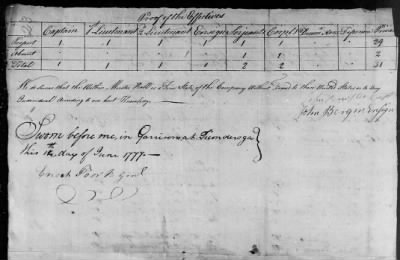 Proof of the Effectives
Captain 1st Lieutenant 2d Lieutenant Ensign Serjeants Corpls Drum & Fifer Privates
Present 1 1 1 1 1 1 29
Absent 1 1 2
Total 1 1 1 1 2 2 31
We do swear that the Within Muster Roll is a True State of the Company Without Fraud to these United States or to Any
Individual According to our best Knowledge
John Bergin Ensign
Sworn before me, in Garrison at Ticonderoga
this day of June 1777
Enoch Poor B Genl